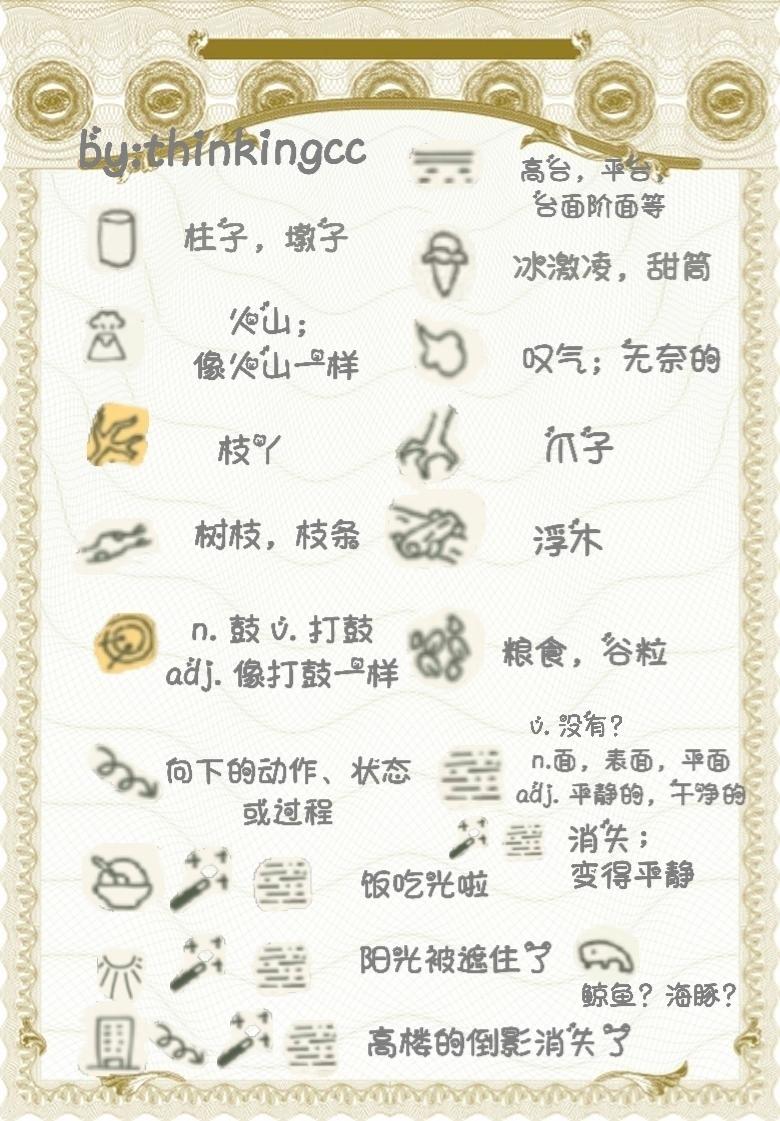 by:thinkingcc
高台，平台，
台面阶面等
柱子，墩子
冰激凌，甜筒
火山；
像火山一样
叹气；无奈的
枝丫
爪子
树枝，枝条
浮木
n. 鼓 v. 打鼓
adj. 像打鼓一样
粮食，谷粒
v. 没有？
n.面，表面，平面
adj. 平静的，干净的
向下的动作、状态
或过程
消失；
变得平静
饭吃光啦
阳光被遮住了
鲸鱼？海豚？
高楼的倒影消失了